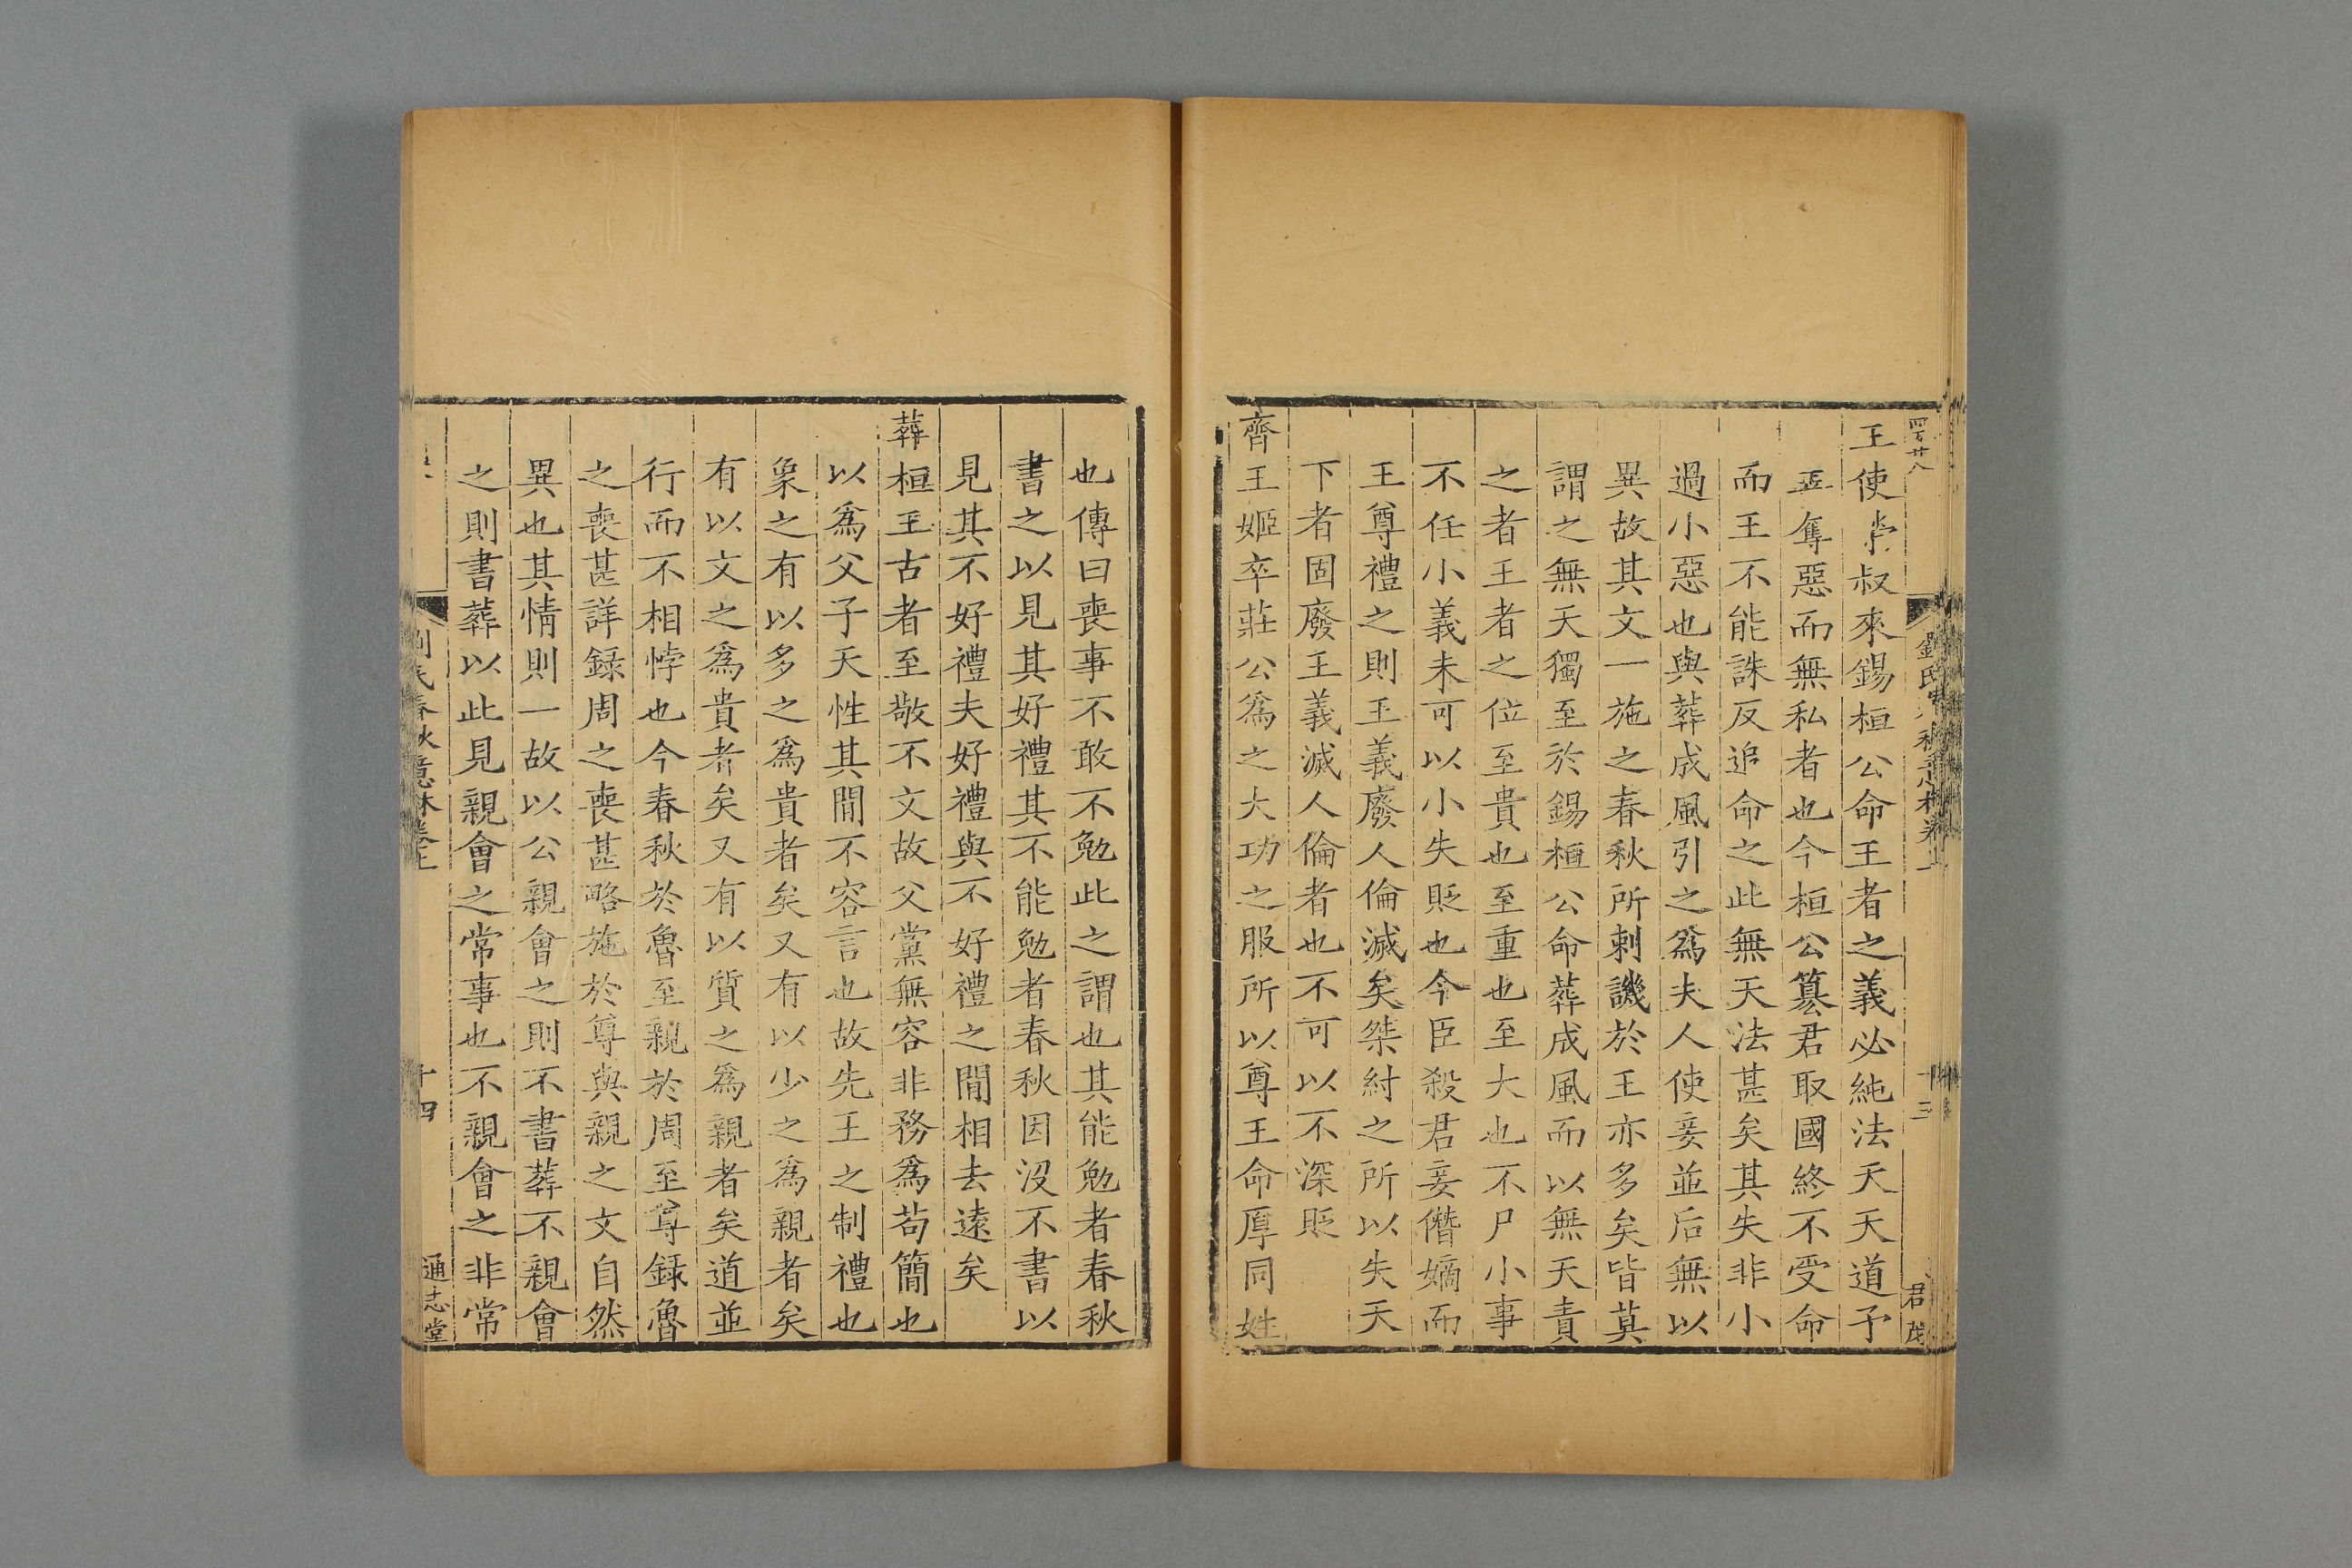 四百廿八
王使榮叔來錫桓公命王者之義必純法天天道予
善奪惡而無私者也今桓公簒君取國終不受命
而王不能誅反追命之此無天法甚矣其失非小
過小惡也與葬成風引之爲夫人使妾並后無以
異故其文一施之春秋所刺譏於王亦多矣皆莫
謂之無天獨至於錫桓公命葬成風而以無天責
之者王者之位至貴也至重也至大也不尸小事
不任小義未可以小失貶也今臣殺君妾僭嫡而
王尊禮之則王義廢人倫滅矣桀紂之所以失天
下者固廢王義滅人倫者也不可以不深貶
齊王姬卒莊公爲之大功之服所以尊王命厚同姓
十三
君茂
也傳曰喪事不敢不勉此之謂也其能勉者春秋
書之以見其好禮其不能勉者春秋因沒不書以
見其不好禮夫好禮與不好禮之間相去遠矣
葬桓王古者至敬不文故父黨無容非務爲苟簡也
以爲父子天性其間不容言也故先王之制禮也
象之有以多之爲貴者矣又有以少之爲親者矣
有以文之爲貴者矣又有以質之爲親者矣道並
行而不相悖也今春秋於魯至親於周至尊錄魯
之喪甚詳錄周之喪甚略施於尊與親之文自然
異也其情則一故以公親會之則不書葬不親會
之則書葬以此見親會之常事也不親會之非常
劉氏春秋意林卷上
十四
通志堂